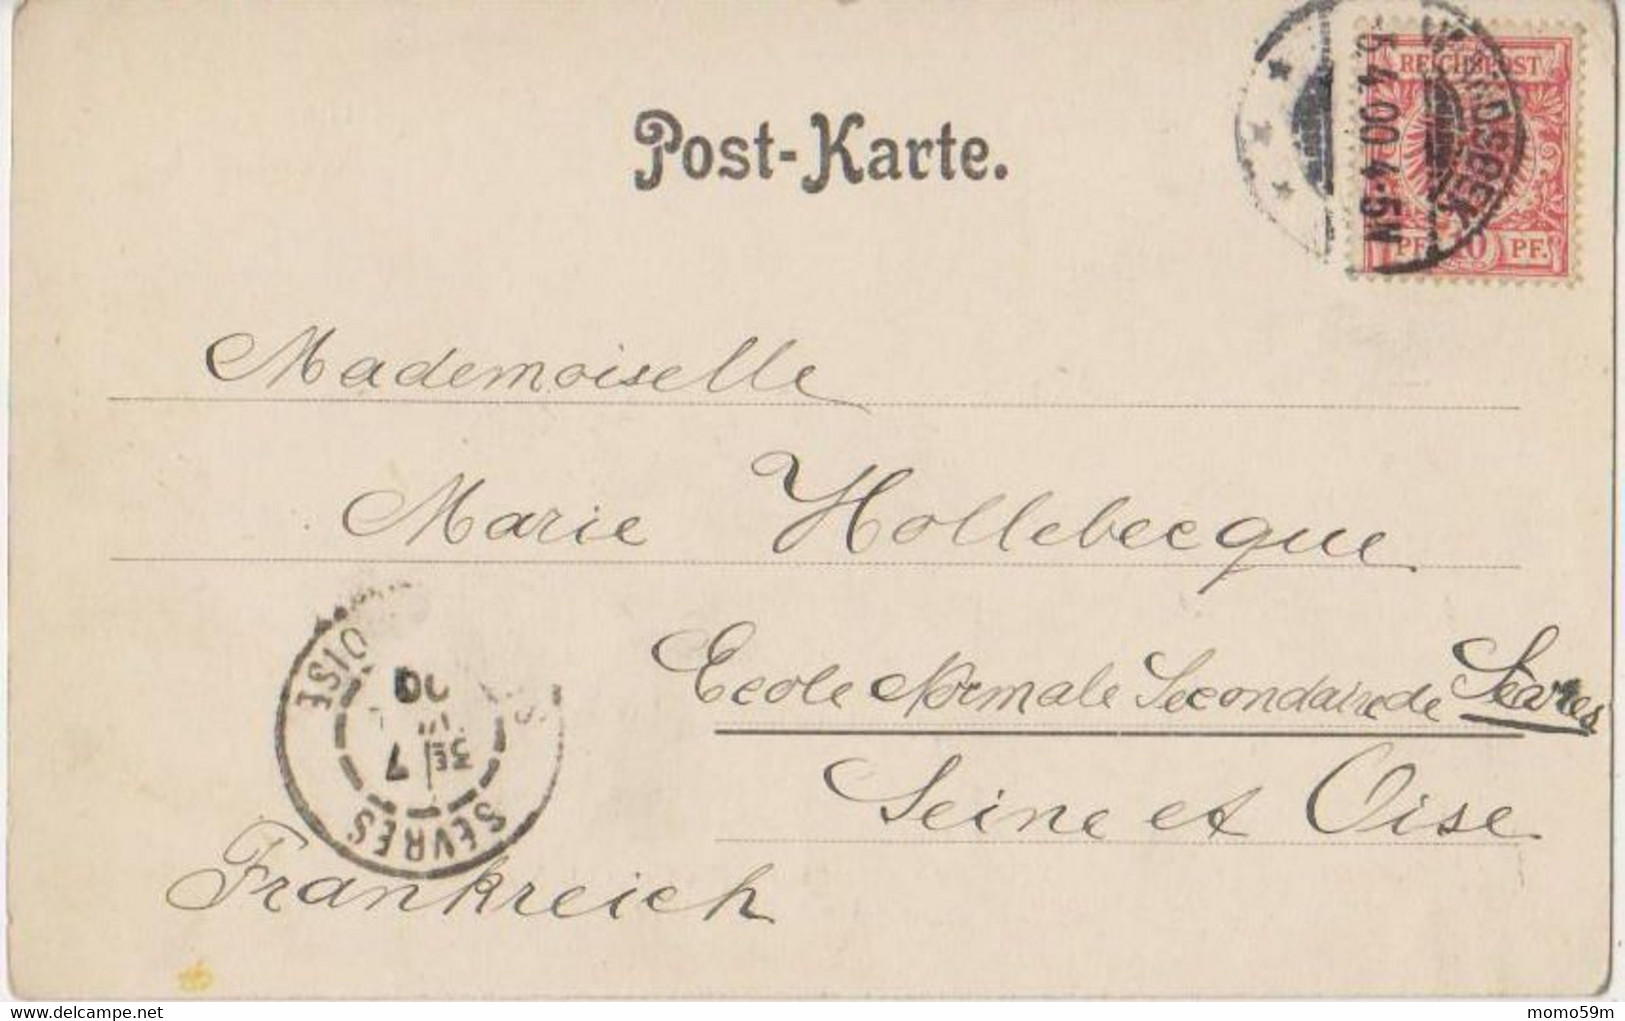 Post-Karte.
REICHSPOST
PF. 10 PF.
WANDSBEK
5.4.00.4-5N
Mademoiselle
Marie Hollebecque
Ecole Normale Secondaire de Sèvres
Seine et Oise
Frankreich
SEVRES
3E
7
00
OISE
www.delcampe.net
momo59m